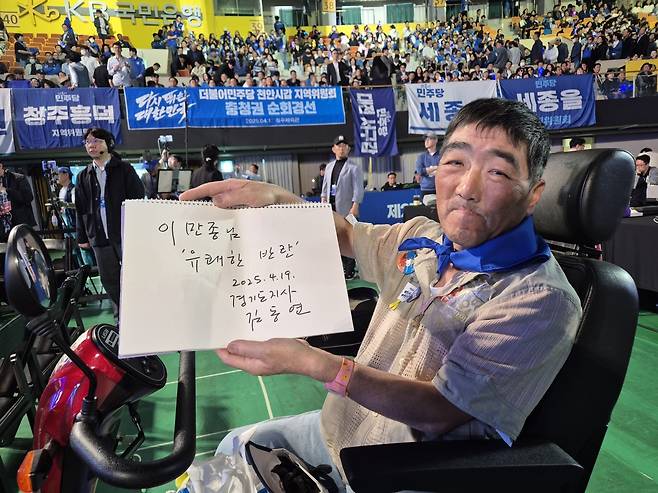 KB국민은행
38
40
민주당
청주흥덕
지역위원회
다시 대한민국
더불어민주당 천안시갑 지역위원회
충청권 순회경선
민주당
세종
민주당
세종을
이 만종님
'유쾌한 반란'
2025.4.19.
경기도지사
김동연